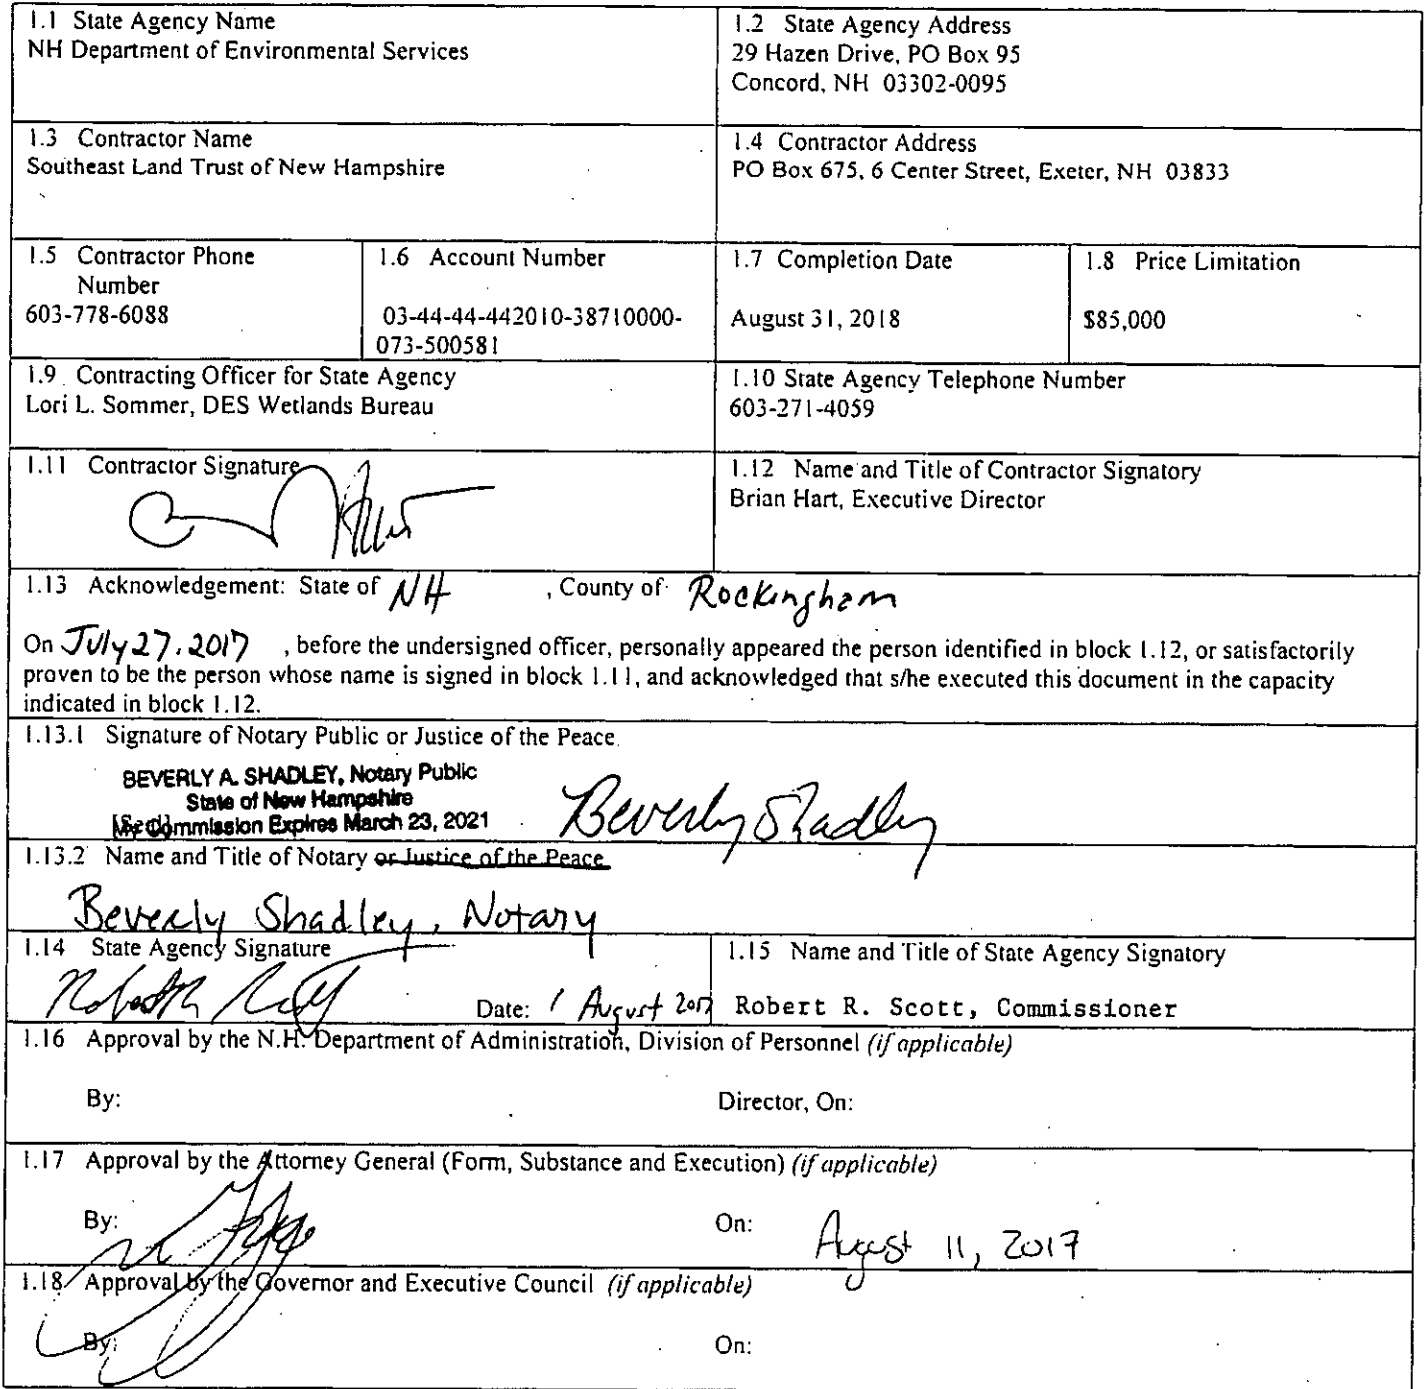 1.1 State Agency Name
NH Department of Environmental Services
1.2 State Agency Address
29 Hazen Drive, PO Box 95
Concord, NH 03302-0095
1.3 Contractor Name
Southeast Land Trust of New Hampshire
1.4 Contractor Address
PO Box 675, 6 Center Street, Exeter, NH 03833
1.5 Contractor Phone
Number
603-778-6088
1.6 Account Number
03-44-44-442010-38710000-
073-500581
1.7 Completion Date
August 31, 2018
1.8 Price Limitation
$85,000
1.9 Contracting Officer for State Agency
Lori L. Sommer, DES Wetlands Bureau
1.10 State Agency Telephone Number
603-271-4059
1.11 Contractor Signature
1.12 Name and Title of Contractor Signatory
Brian Hart, Executive Director
1.13 Acknowledgement: State of NH , County of Rockingham
On July 27, 2017 , before the undersigned officer, personally appeared the person identified in block 1.12, or satisfactorily
proven to be the person whose name is signed in block 1.11, and acknowledged that s/he executed this document in the capacity
indicated in block 1.12.
1.13.1 Signature of Notary Public or Justice of the Peace
BEVERLY A. SHADLEY, Notary Public
State of New Hampshire
My Commission Expires March 23, 2021
Beverly Shadley
1.13.2 Name and Title of Notary or Justice of the Peace
Beverly Shadley, Notary
1.14 State Agency Signature
Date: 1 August 2017
1.15 Name and Title of State Agency Signatory
Robert R. Scott, Commissioner
1.16 Approval by the N.H. Department of Administration, Division of Personnel (if applicable)
By:
Director, On:
1.17 Approval by the Attorney General (Form, Substance and Execution) (if applicable)
By:
On: August 11, 2017
1.18 Approval by the Governor and Executive Council (if applicable)
By:
On: